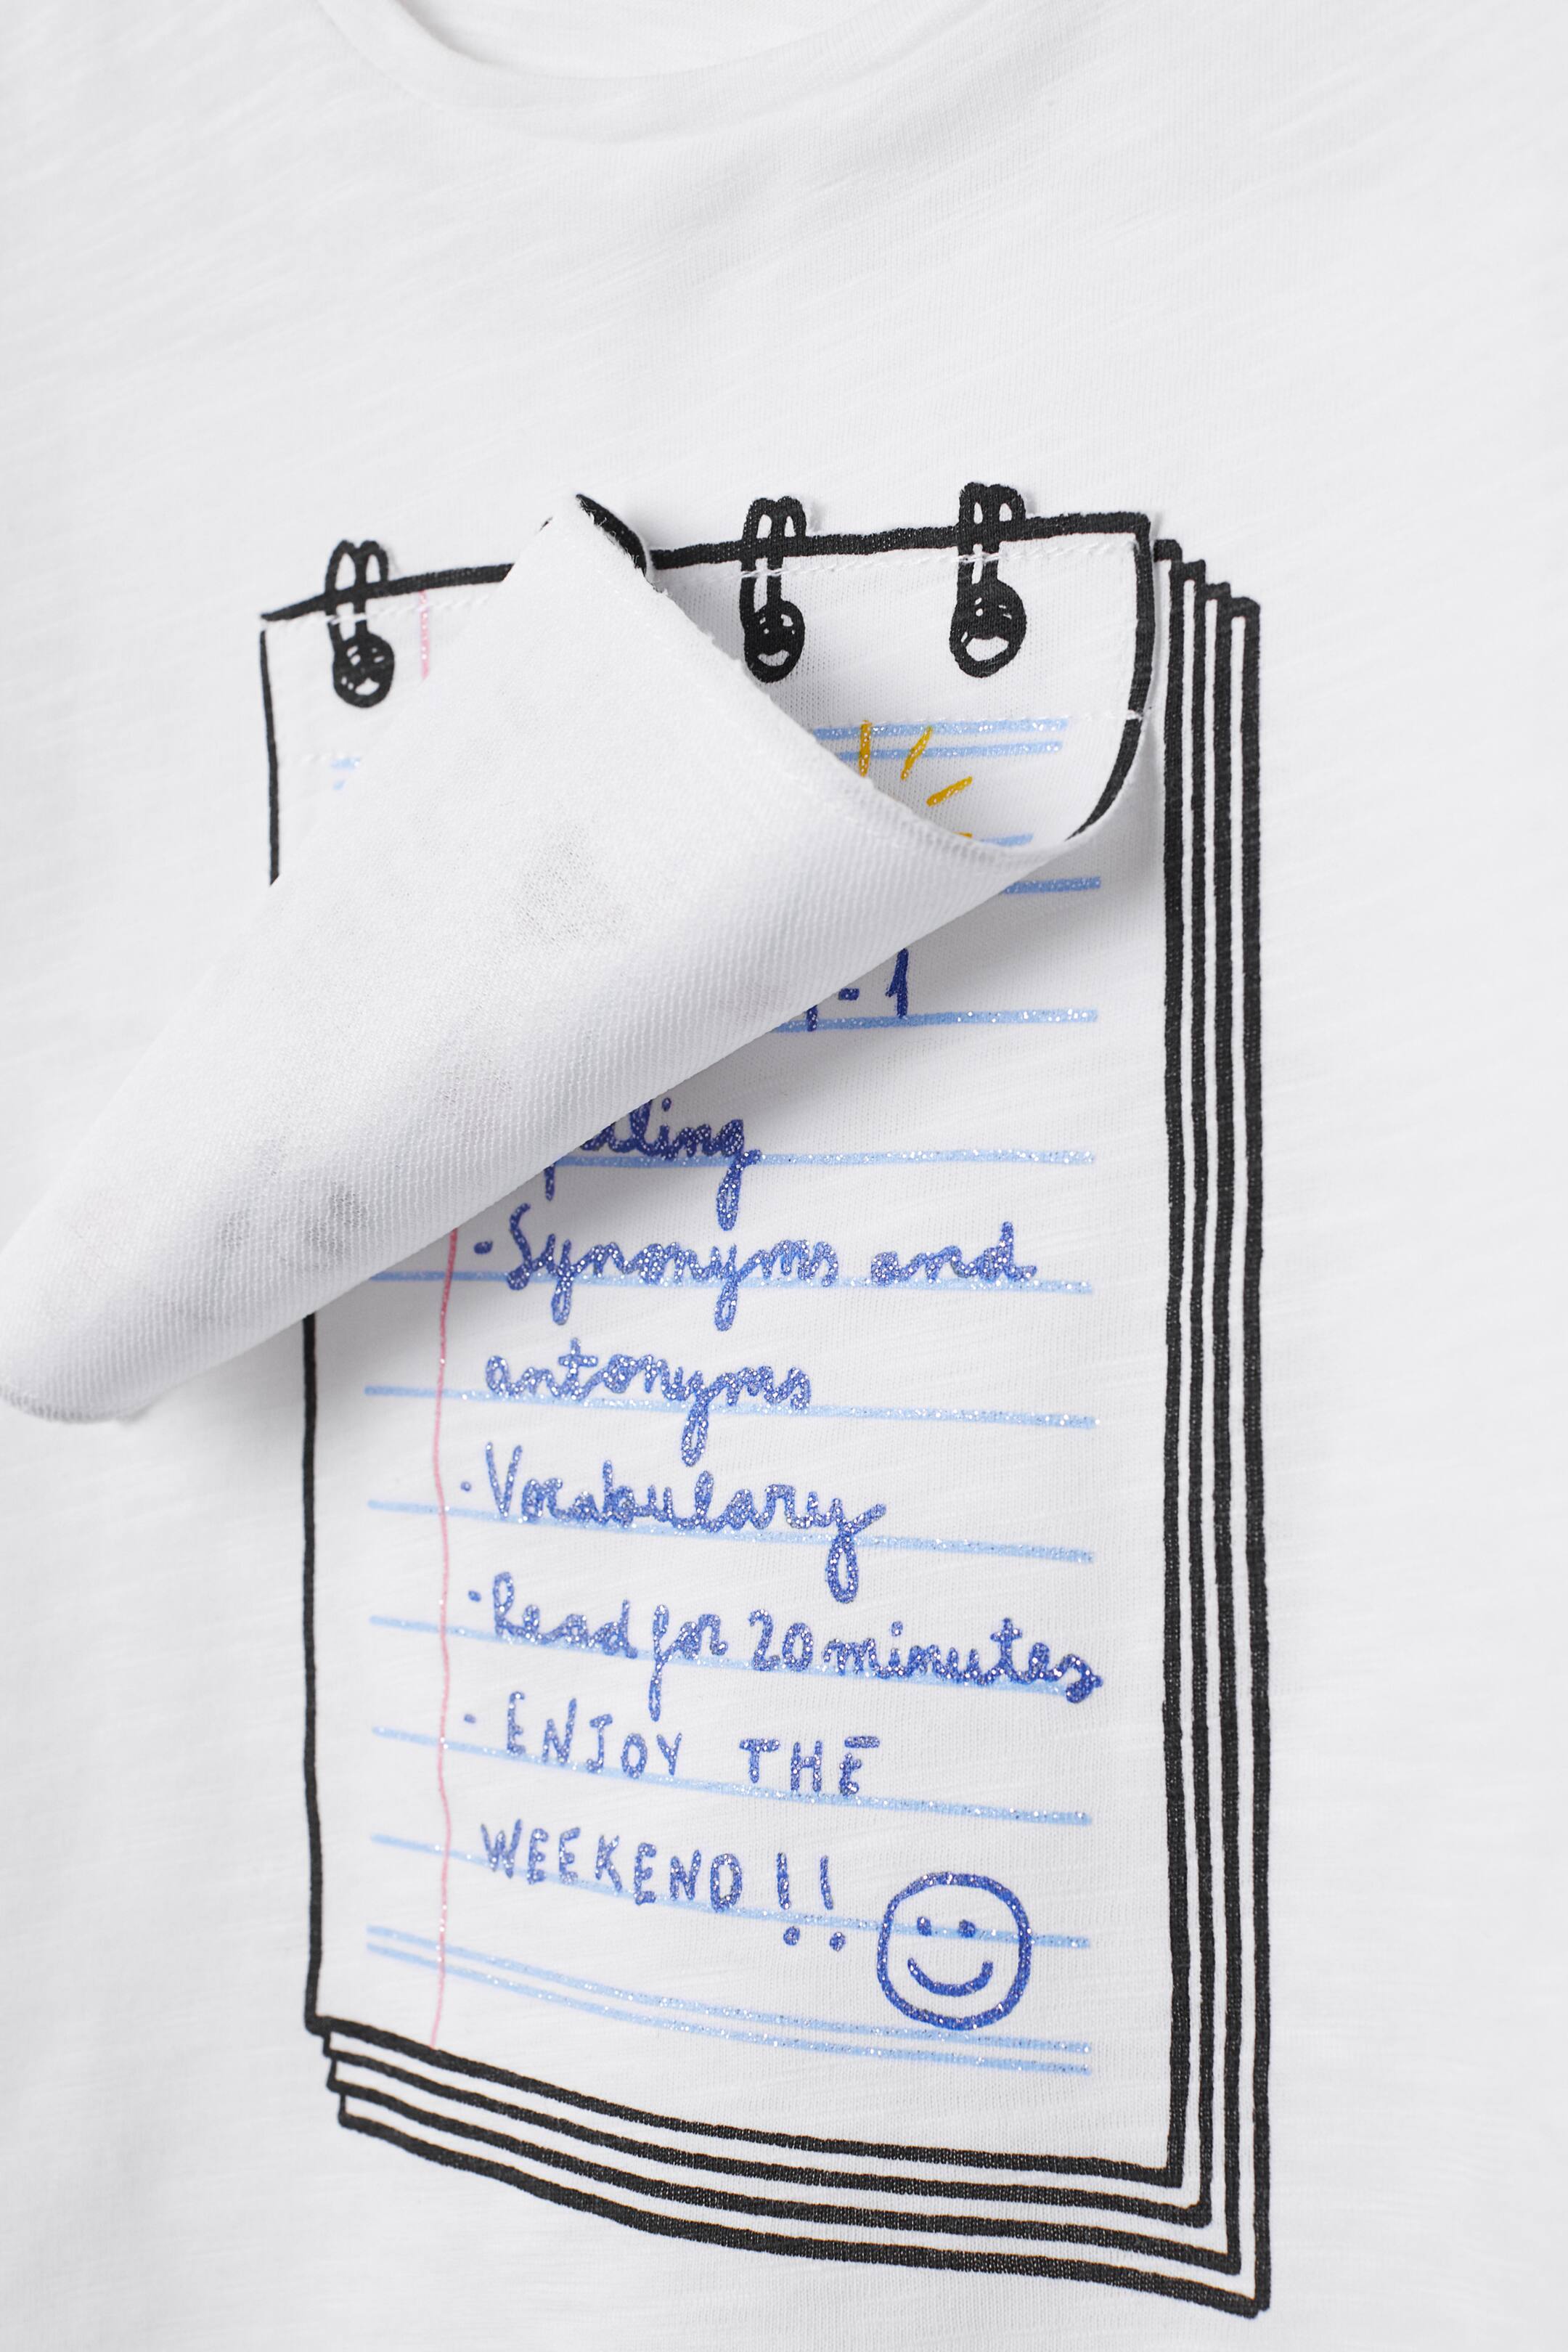 -1
· Synonyms and
antonyms
· Vocabulary
· Read for 20 minutes
- ENJOY THE
WEEKEND !!